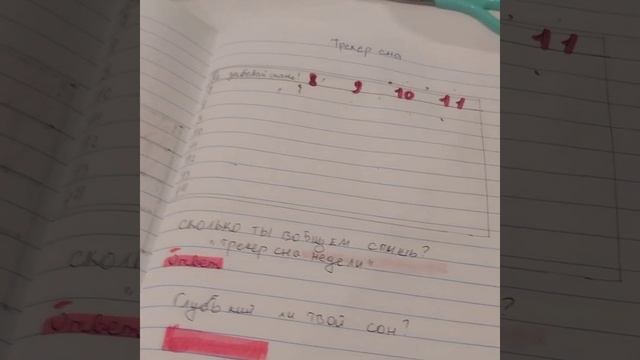 Трекер сна
8 9 10 11
сколько ты вобщем спишь?
"трекер сна недели"
Ответ
Глубокий ли твой сон?